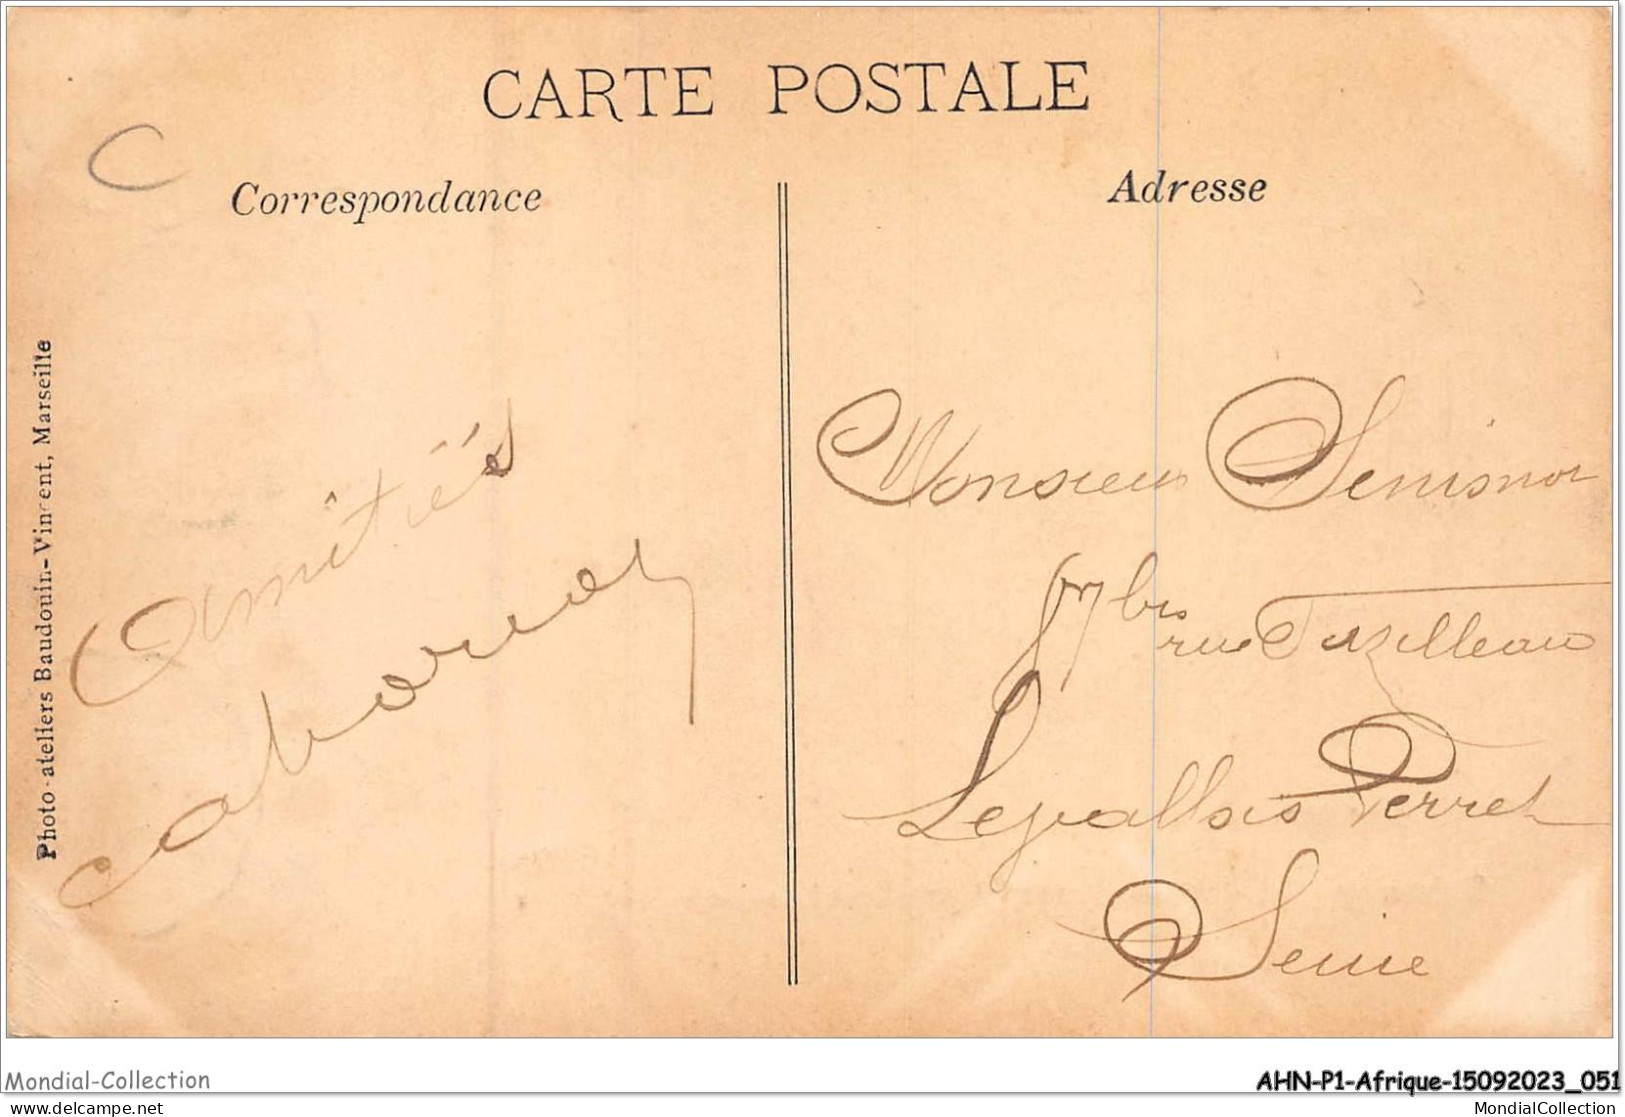 CARTE POSTALE
C
Correspondance
Adresse
Photo-ateliers Baudouin-Vincent, Marseille
Amitiés
Monsieur
bis
rue
Levallois Perret
Seine
Mondial-Collection
AHN-P1-Afrique-15092023_051
delcampe.net
MondialCollection